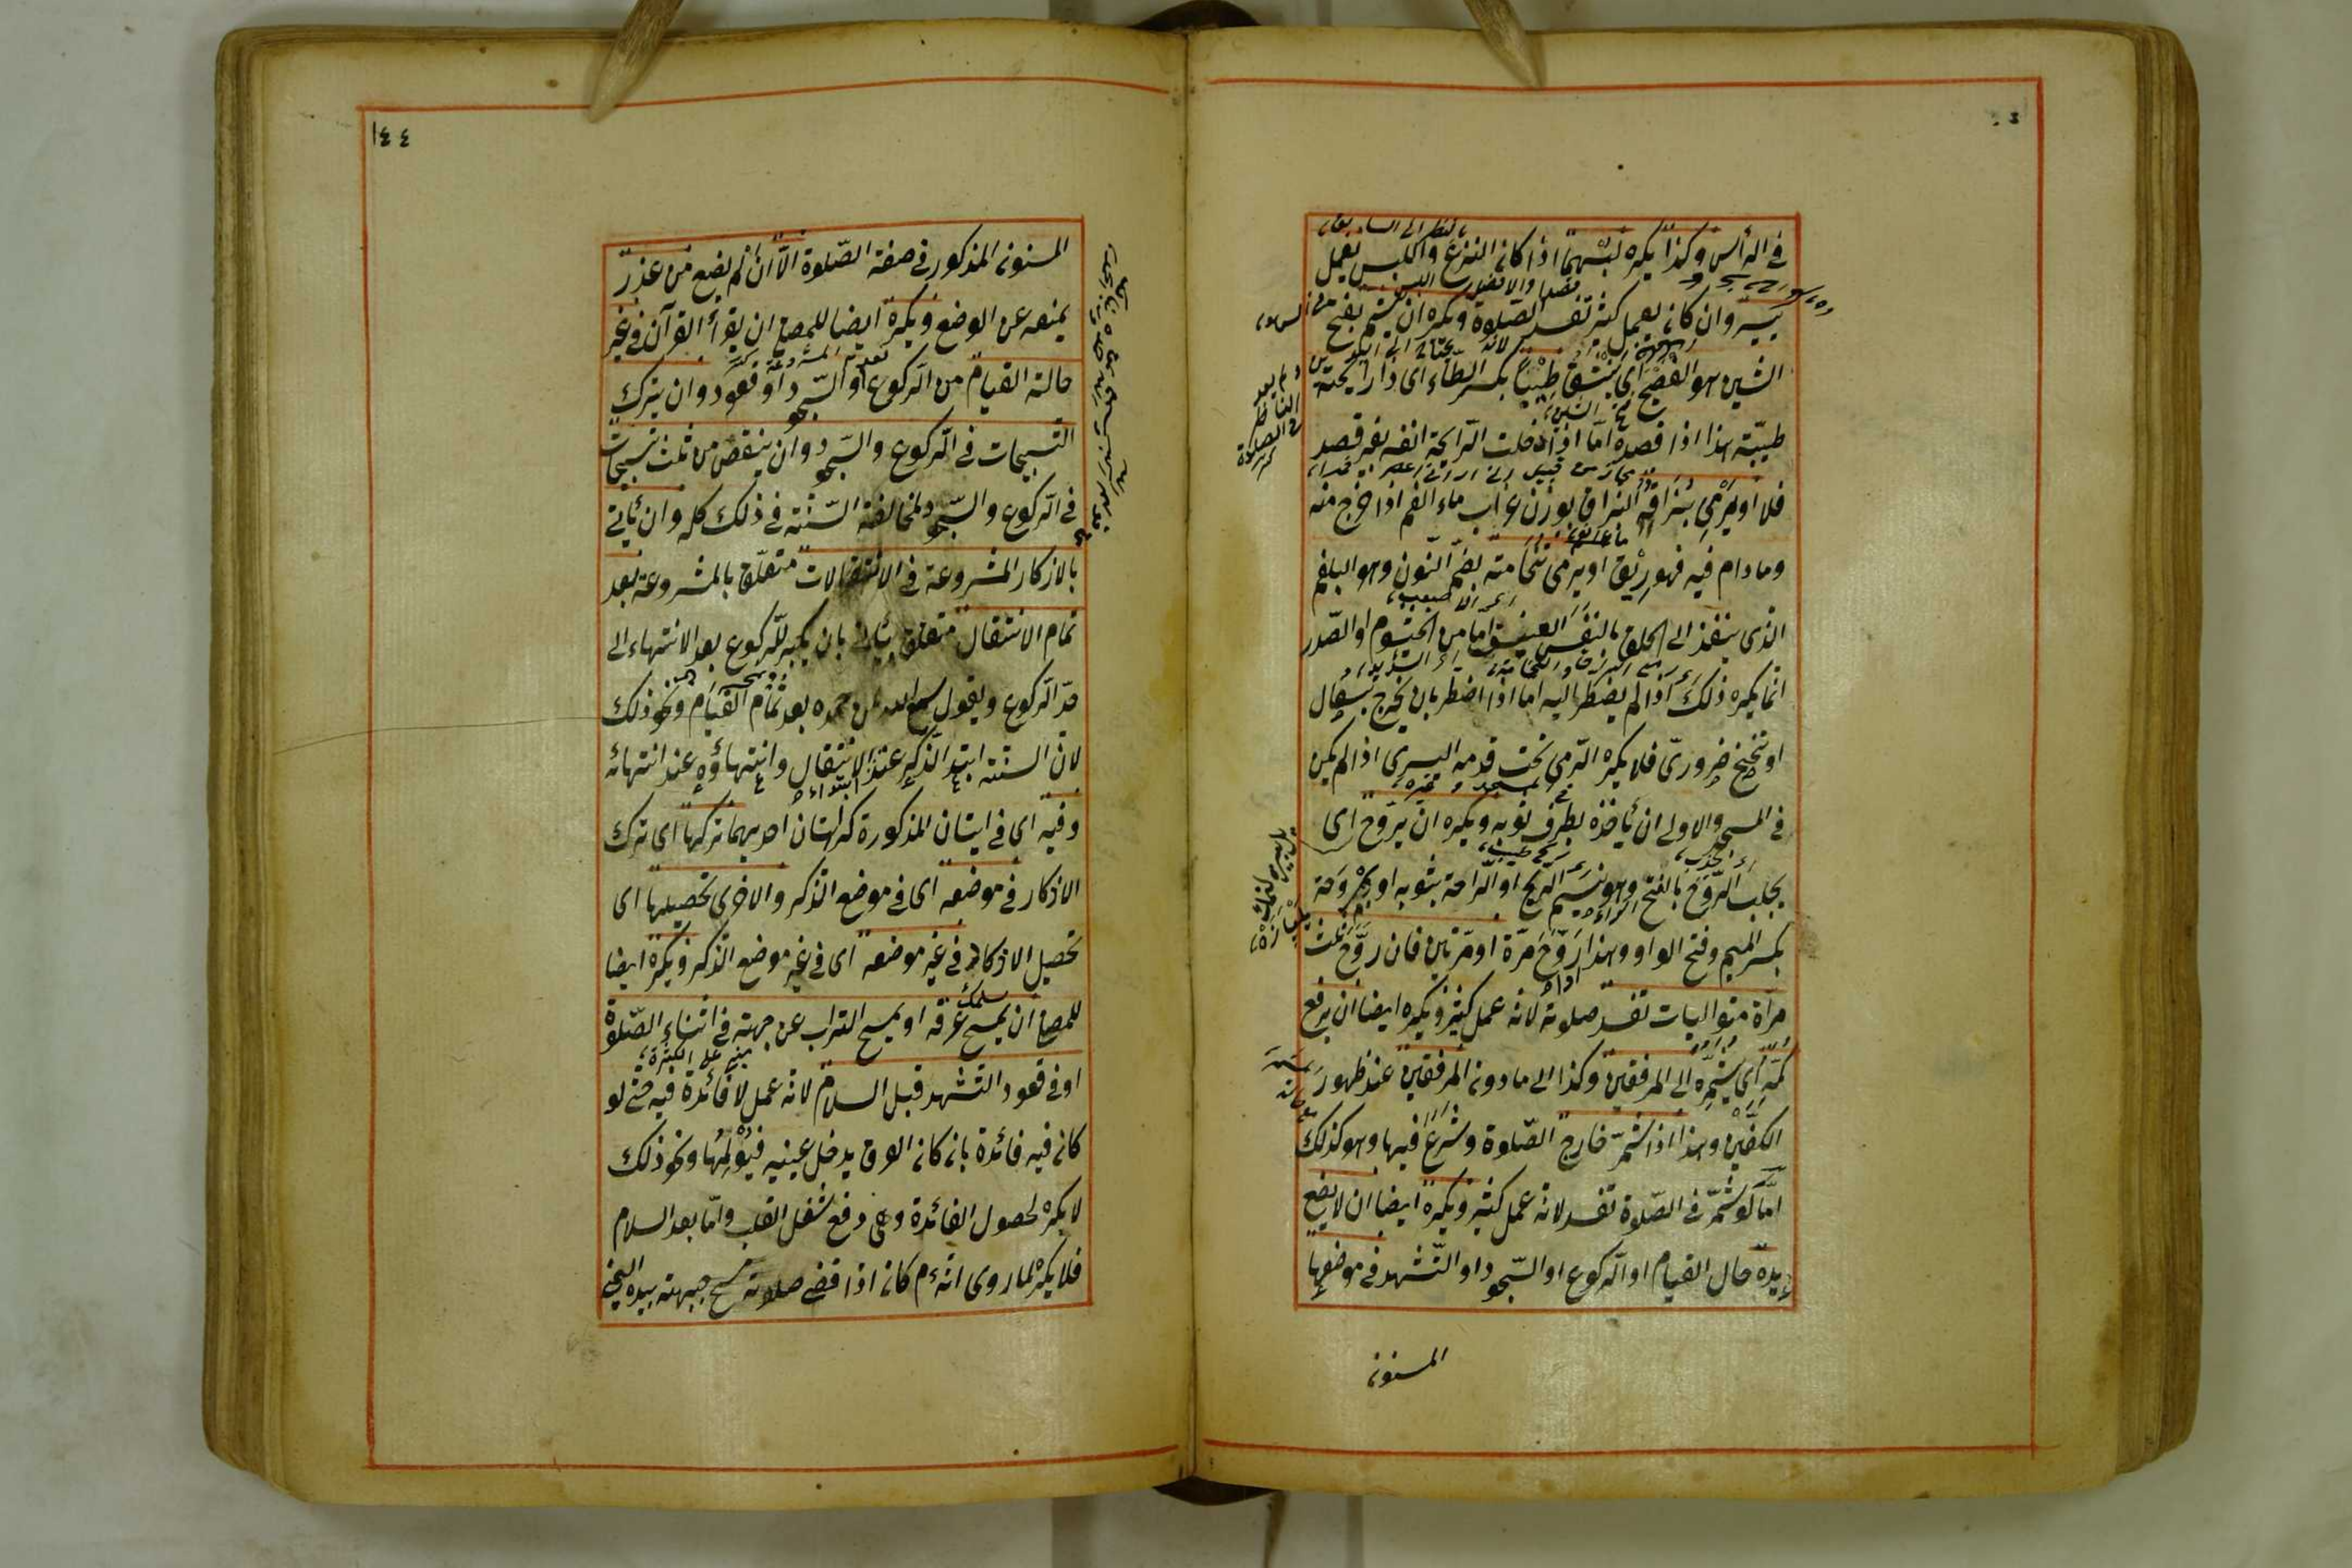 في الرأس وكذا يكره لبسهما اذا كان النزع واللبس بعمل
يسير وان كان بعمل كثير تفسد الصلوة ويكره ان يشم بفتح
الشين هو الفصيح اي ينشق طيبا بكسر الطاء اى ذا رايحة
طيبة هذا اذا قصده امّا اذا دخلت الرّايحة انفه بغير قصد
فلا او يرمي بُزاقه البزاق بوزن غراب ماء الفم اذا خرج منه
وما دام فيه فهو ريق او يرمى نخامته بضم النّون وهو البلغم
الذى ينفذ الى الحلق بالنفس العنيف اما من الخيشوم او الصّدر
انما يكره ذلك اذا لم يضطر اليه اما اذا اضطر بان يخرج بسعال
او تنحنح ضروريّ فلا يكره الرّمى تحت قدمه اليسرى اذا لم يكن
في المسجد والاولى ان يأخذه بطرف ثوبه ويكره ان يروّح اى
يجلب الرَّوح بالفتح وهو نسيم الرّيح او الرّاحة بثوبه او بمِروَحة
بكسر الميم وفتح الواو وهذا اذا رَوّح مرّة او مرّتين فان روّح ثلث
مرات متواليات تفسد صلوته لانه عمل كثير ويكره ايضا ان يرفع
كمّه اي يشمّره الى المرفقين وكذا الى ما دون المرفقين عند ظهور
الكفّين وهذا اذا شمّر خارج الصّلوة وشرع فيها وهو كذلك
امّا لو شمّر في الصّلوة تفسد لانه عمل كثير ويكره ايضا ان لا يضع
يده حال القيام او الرّكوع او السّجود او التّشهد في موضعها
المسنون
١٤٤
المسنون المذكور في صفة الصّلوة الّا ان لم يضع من عذر
يمنعه عن الوضع ويكره ايضا للمصلي ان يقرأ القرآن في غير
حالة القيام من الرّكوع او السّجود او قعود وان يترك
التّسبيحات في الرّكوع والسّجود وان ينقص من ثلث تسبيحات
في الرّكوع والسّجود لمخالفة السّنة في ذلك كله وان يأتي
بالاذكار المشروعة في الانتقالات متعلّق بالمشروعة بعد
تمام الانتقال متعلق بيأتي بان يكبّر للرّكوع بعد الانتهاء الى
حدّ الرّكوع ويقول سمع الله لمن حمده بعد تمام القيام ونحو ذلك
لانّ السنّة ابتداء الذّكر عند الانتقال وانتهاؤه عند انتهائه
وفيه اى في اتيان المذكورة كراهتان احديهما تركها اى ترك
الاذكار في موضعه اى في موضع الذّكر والاخرى تحصيلها اى
تحصيل الاذكار في غير موضعه اى في غير موضع الذّكر ويكره ايضا
للمصلي ان يمسح عرقه او يمسح التراب عن جبهته في اثناء الصّلوة
او في قعود التّشهد قبل السلام لانّه عمل لا فائدة فيه حتى لو
كان فيه فائدة بان كان العرق يدخل عينيه فيؤلمها ونحو ذلك
لا يكره لحصول الفائدة وهى دفع شغل القلب وامّا بعد السلام
فلا يكره لما روى انّه م كان اذا قضى صلاته مسح جبهته بيده اليمنى